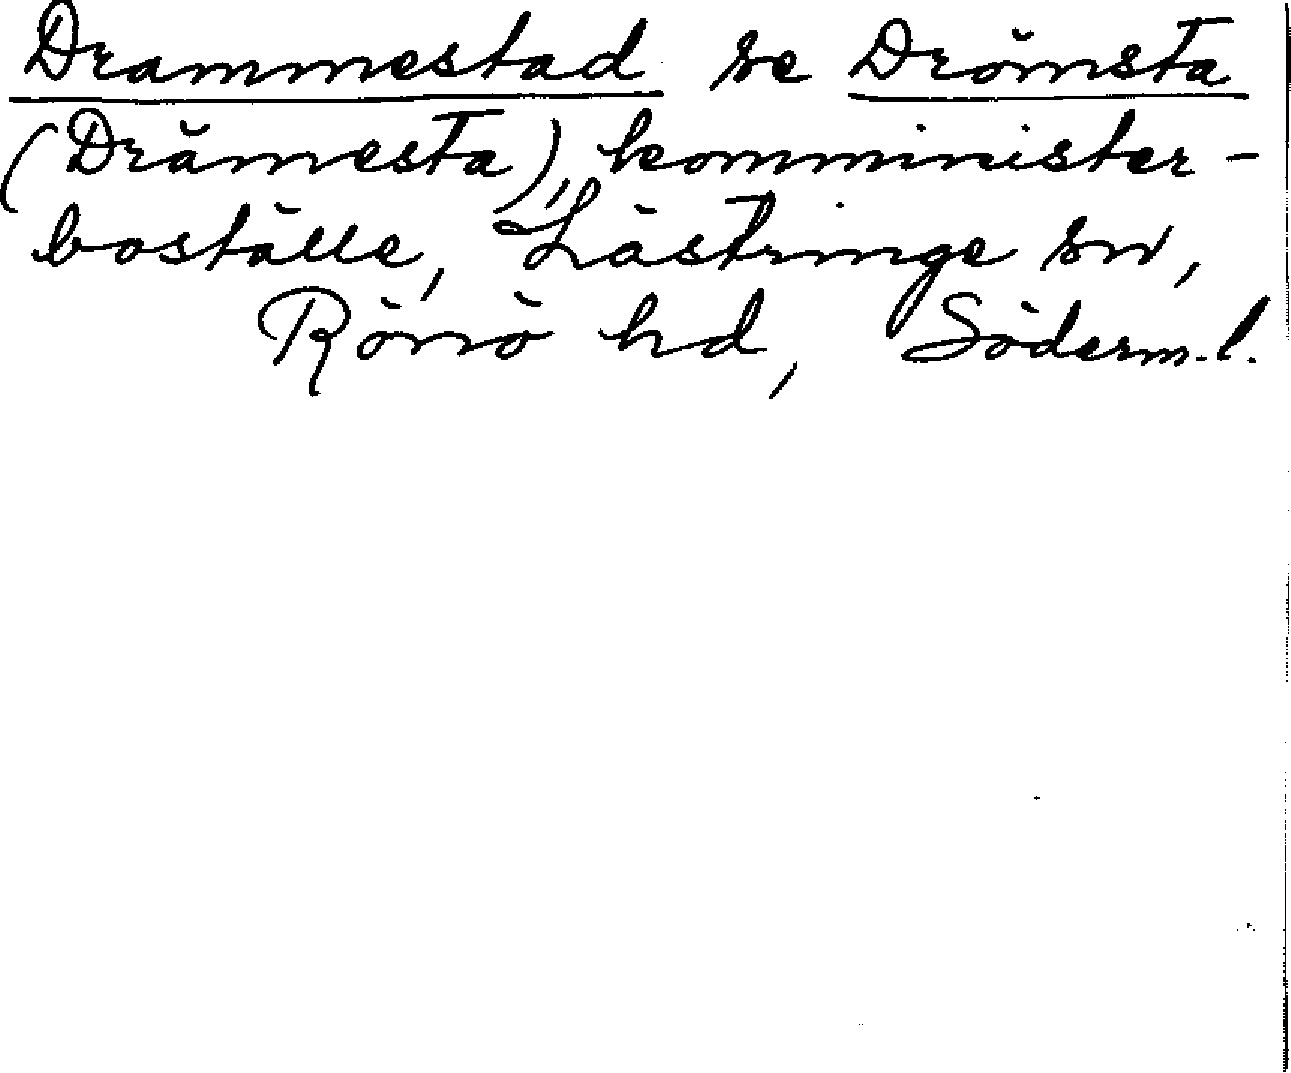 Drammestad se Drömsta
(Drämesta), komminister-
boställe, Lästringe sn,
Rönö hd, Söderm. l.